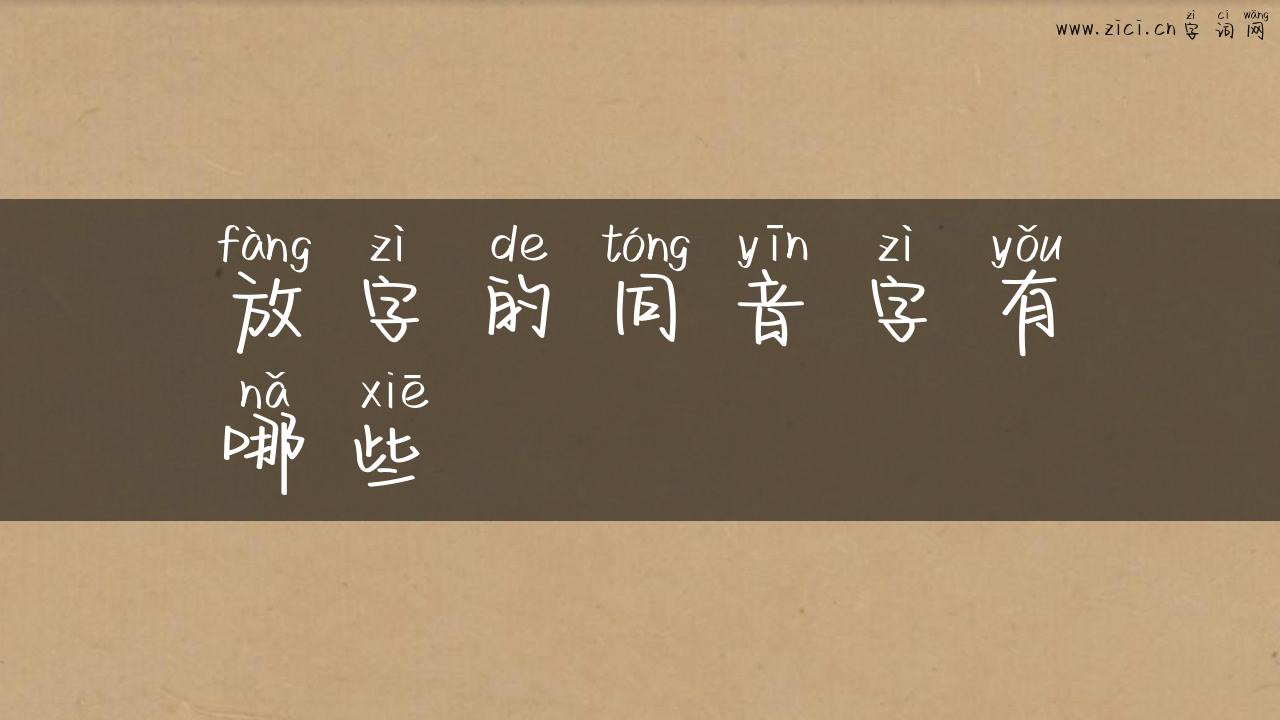 zì cí wǎng
www.zici.cn 字 词 网
fàng zì de tóng yīn zì yǒu
放 字 的 同 音 字 有
nǎ xiē
哪 些